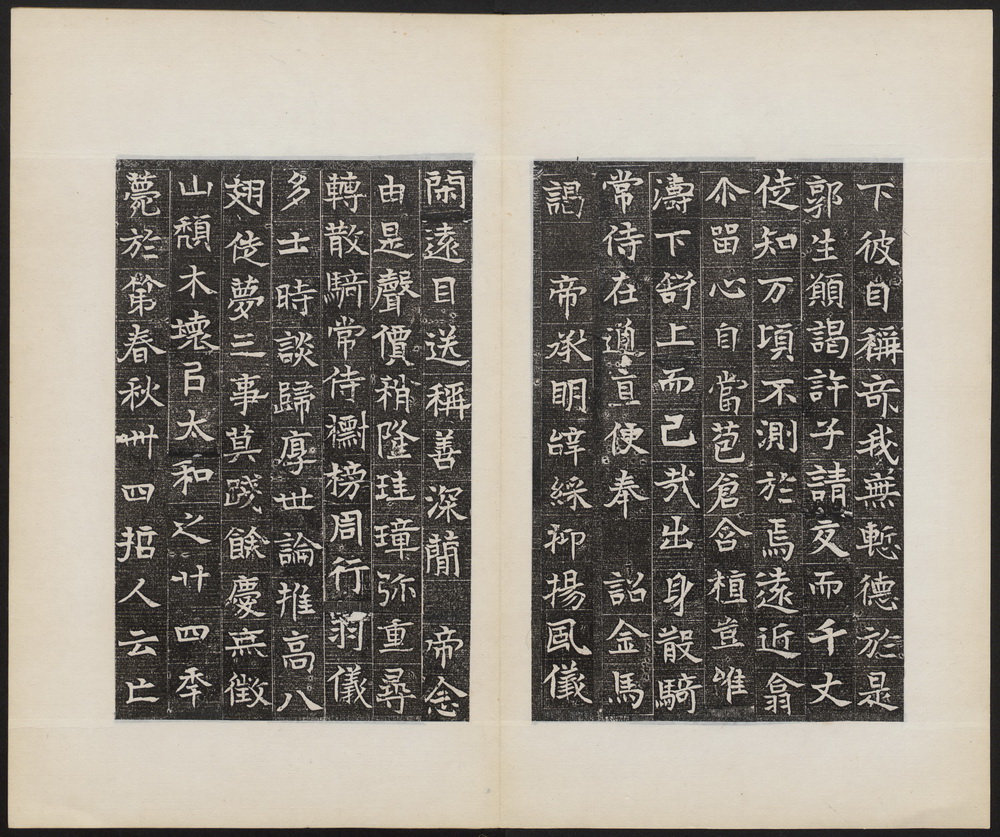 下彼自稱奇我無慙德於是
郭生願謁許子請交而千丈
伎知万頃不測於焉遠近翕
尒留心自當苞倉含植豈唯
濤下嵆上而已哉出身散騎
常侍在遵亶便奉 詔金馬
謁 帝承明皣綵抑揚風儀
閑遠目送稱善深簡 帝念
由是聲價稍隆珪璋弥重尋
轉散騎常侍襽榜周行羽儀
多士時談歸厚世論推高八
翅徙夢三事莫踐餘慶無徵
山頹木壞㠯太和之廿四季
薨於第春秋卌四哲人云亡